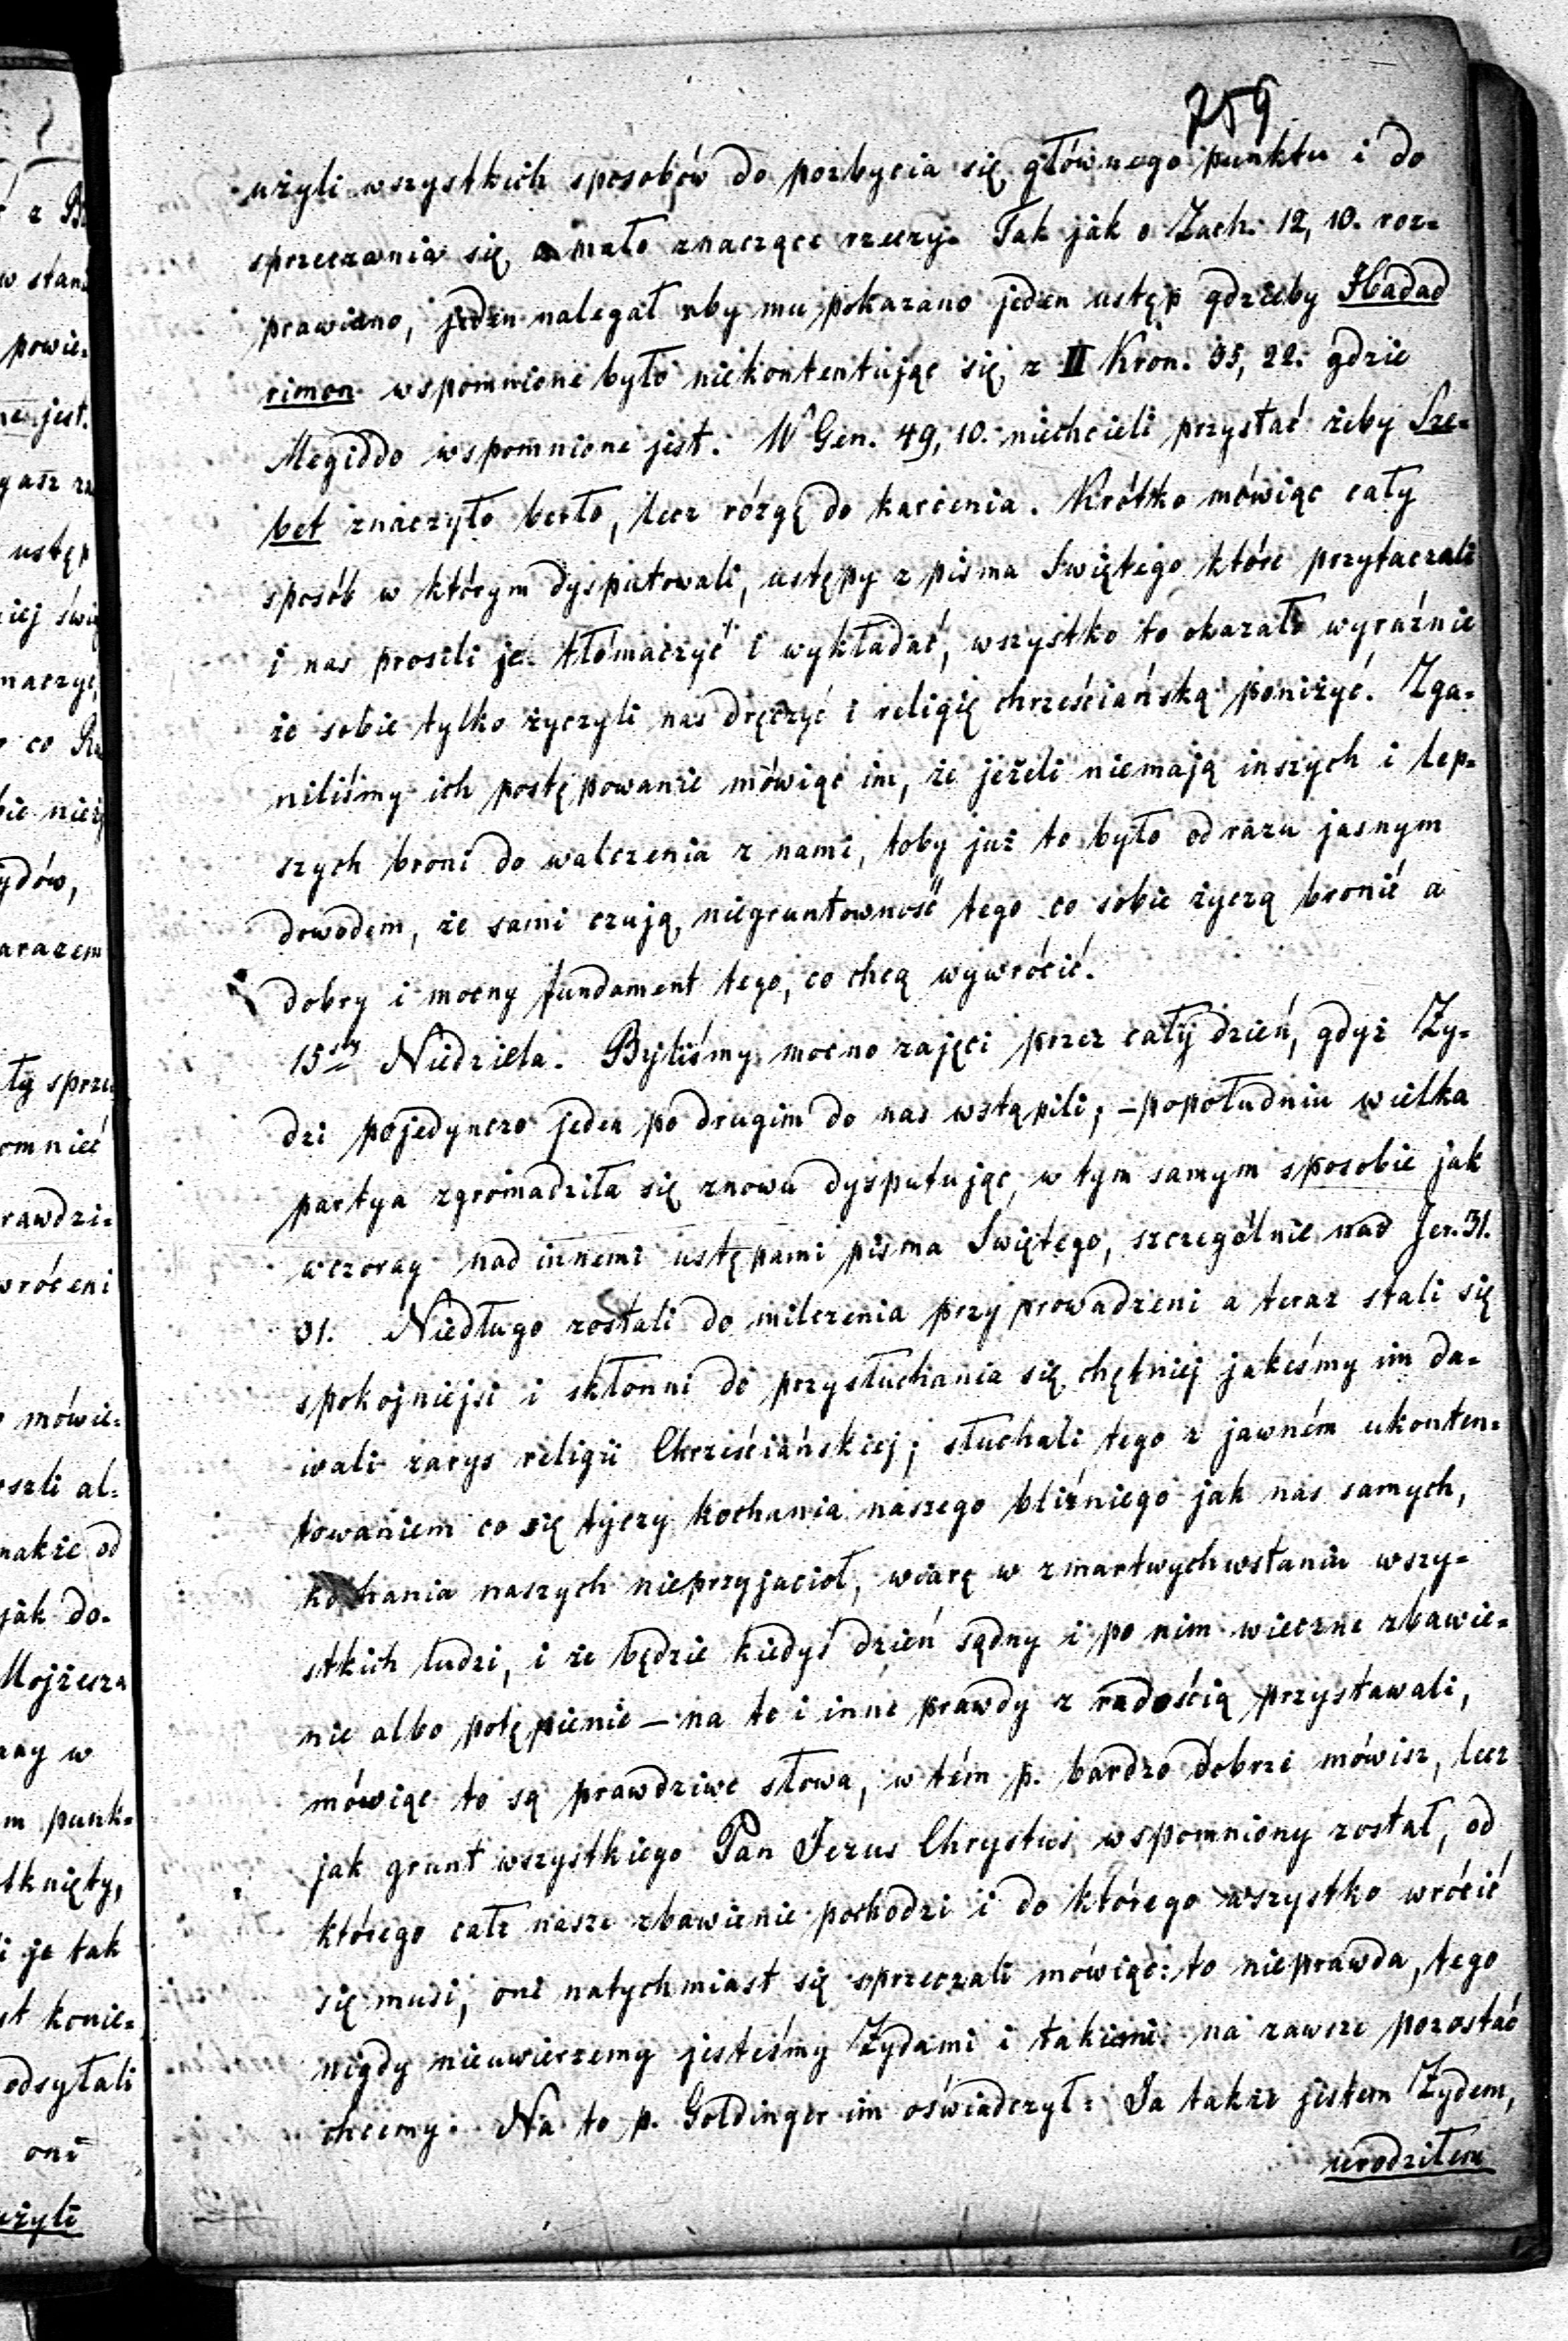 759
użyli wszystkich sposobów do pozbycia się głównego punktu i do
sprzeczania się o mało znaczące rzeczy. Tak jak o Zach. 12, 10. roz-
prawiano, jeden nalegał aby mu pokazano jeden ustęp gdzieby Hadad
rimon wspomnione było niekontentując się z II Kron. 35, 22. gdzie
Megiddo wspomnione jest. W Gen. 49, 10. niechcieli przystać żeby Sze-
bet znaczyło berło, lecz rózgę do karcenia. Krótko mówiąc cały
sposób w którym dysputowali, ustępy z pisma Swiętego które przytaczali
i nas prosili je tłómaczyć i wykładać, wszystko to okazało wyraźnie
że sobie tylko życzyli nas dręczyć i religię chrześciańską poniżyć. Zga-
niliśmy ich postępowanie mówiąc im, że jeżeli niemają inszych i lep-
szych broni do walczenia z nami, toby już to było odrazu jasnym
dowodem, że sami czują niegruntowność tego co sobie życzą bronić a
dobry i mocny fundament tego, co chcą wywrócić.
15sty Niedziela. Byliśmy mocno zajęci przez cały dzień, gdyż Zy-
dzi pojedynczo jeden po drugim do nas wstąpili; – popołudniu wielka
partya zgromadziła się znowu dysputując w tym samym sposobie jak
wczoray nad innemi ustępami pisma Swiętego, szczególnie nad Jer. 31.
31. Niedługo zostali do milczenia przyprowadzeni a teraz stali się
spokojniejsi i skłonni do przysłuchania się chętniej jakeśmy im da-
wali zarys religii Chrześciańskiej; słuchali tego z jawném ukonten-
towaniem co się tyczy kochania naszego bliźniego jak nas samych,
kochania naszych nieprzyjacioł, wiarę w zmartwychwstaniu wszy-
stkich ludzi, i że będzie kiedyś dzień sądny i po nim wieczne zbawie-
nie albo potępienie – na te i inne prawdy z radością przystawali,
mówiąc to są prawdziwe słowa, w tém p. bardzo dobrze mówisz, lecz
jak grunt wszystkiego Pan Jezus Chrystus wspomniony został, od
którego całe nasze zbawienie pochodzi i do którego wszystko wrócić
się musi, oni natychmiast się sprzeczali mówiąc: to nieprawda, tego
nigdy nieuwierzemy jesteśmy Zydami i takiemi na zawsze pozostać
chcemy. Na to p. Goldinger im oświadczył: Ja także jestem Zydem,
urodziłem